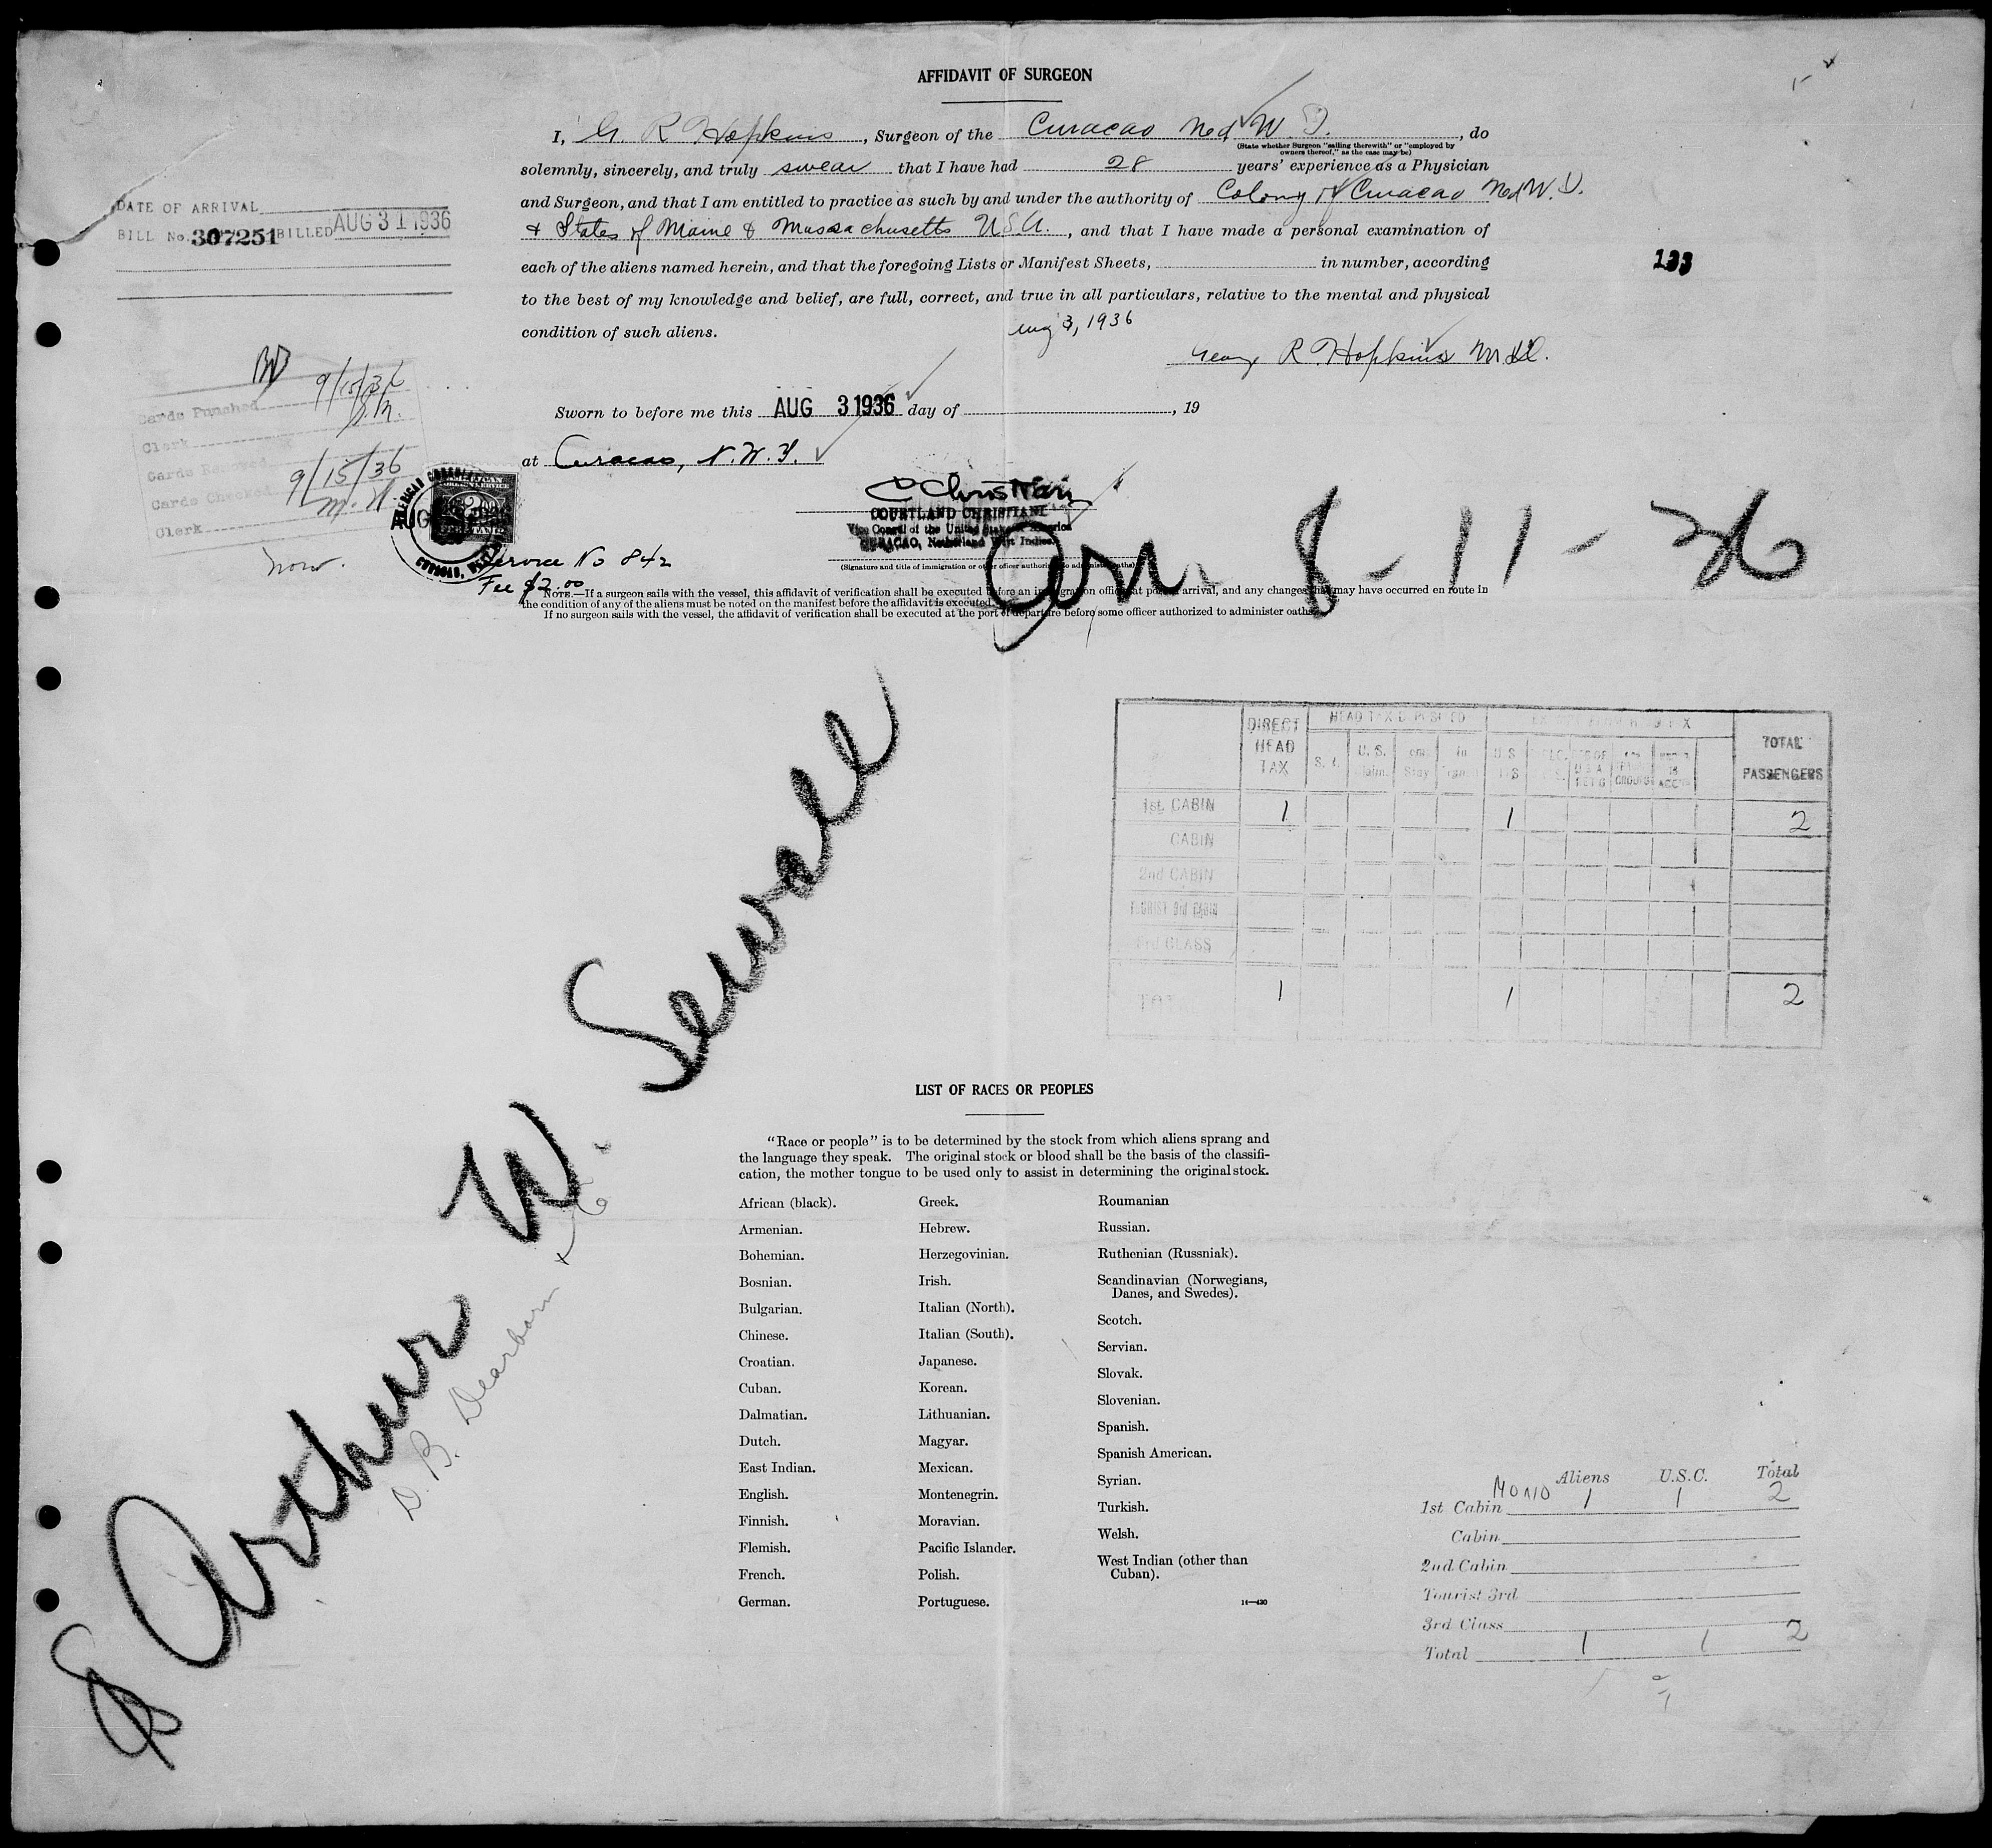 AFFIDAVIT OF SURGEON
I, G. R Hopkins, Surgeon of the Curacao Ned W. I., do
(State whether Surgeon "sailing therewith" or "employed by owners thereof," as the case may be)
solemnly, sincerely, and truly swear that I have had 28 years' experience as a Physician
and Surgeon, and that I am entitled to practice as such by and under the authority of Colony of Curacao Ned W. I.
& States of Maine & Massachusetts U.S.A., and that I have made a personal examination of
each of the aliens named herein, and that the foregoing Lists or Manifest Sheets, in number, according
to the best of my knowledge and belief, are full, correct, and true in all particulars, relative to the mental and physical
condition of such aliens.
Aug 3, 1936
George R. Hopkins M.D.
133
DATE OF ARRIVAL
BILL No. 307251 BILLED AUG 31 1936
Cards Punched 9/15/36
Clerk
Cards Removed
Cards Checked 9/15/36
Clerk M. H.
Sworn to before me this AUG 3 1936 day of , 19
at Curacao, N.W.I.
C Christiani
COURTLAND CHRISTIANI
Vice Consul of the United States of America
CURACAO, Netherland West Indies.
(Signature and title of immigration or other officer authorized to administer oaths)
AMERICAN
FOREIGN SERVICE
Service No 842
Fee $2.00
Arr. 8-11-36
NOTE.—If a surgeon sails with the vessel, this affidavit of verification shall be executed before an immigration officer at port of arrival, and any changes that may have occurred en route in
the condition of any of the aliens must be noted on the manifest before the affidavit is executed.
If no surgeon sails with the vessel, the affidavit of verification shall be executed at the port of departure before some officer authorized to administer oaths.
DIRECT HEAD TAX
HEAD TAX DEPOSITED
TOTAL PASSENGERS
1st CABIN 1 1 2
CABIN
2nd CABIN
TOURIST 3rd CABIN
3rd CLASS
TOT 1 1 2
S Arthur W. Sewall
D. B. Dearborn
LIST OF RACES OR PEOPLES
"Race or people" is to be determined by the stock from which aliens sprang and
the language they speak. The original stock or blood shall be the basis of the classifi-
cation, the mother tongue to be used only to assist in determining the original stock.
African (black).
Armenian.
Bohemian.
Bosnian.
Bulgarian.
Chinese.
Croatian.
Cuban.
Dalmatian.
Dutch.
East Indian.
English.
Finnish.
Flemish.
French.
German.
Greek.
Hebrew.
Herzegovinian.
Irish.
Italian (North).
Italian (South).
Japanese.
Korean.
Lithuanian.
Magyar.
Mexican.
Montenegrin.
Moravian.
Pacific Islander.
Polish.
Portuguese.
Roumanian
Russian.
Ruthenian (Russniak).
Scandinavian (Norwegians,
Danes, and Swedes).
Scotch.
Servian.
Slovak.
Slovenian.
Spanish.
Spanish American.
Syrian.
Turkish.
Welsh.
West Indian (other than
Cuban).
14—430
Aliens U.S.C. Total
1st Cabin 1 1 2
Cabin
2nd Cabin
Tourist 3rd
3rd Class
Total 1 1 2